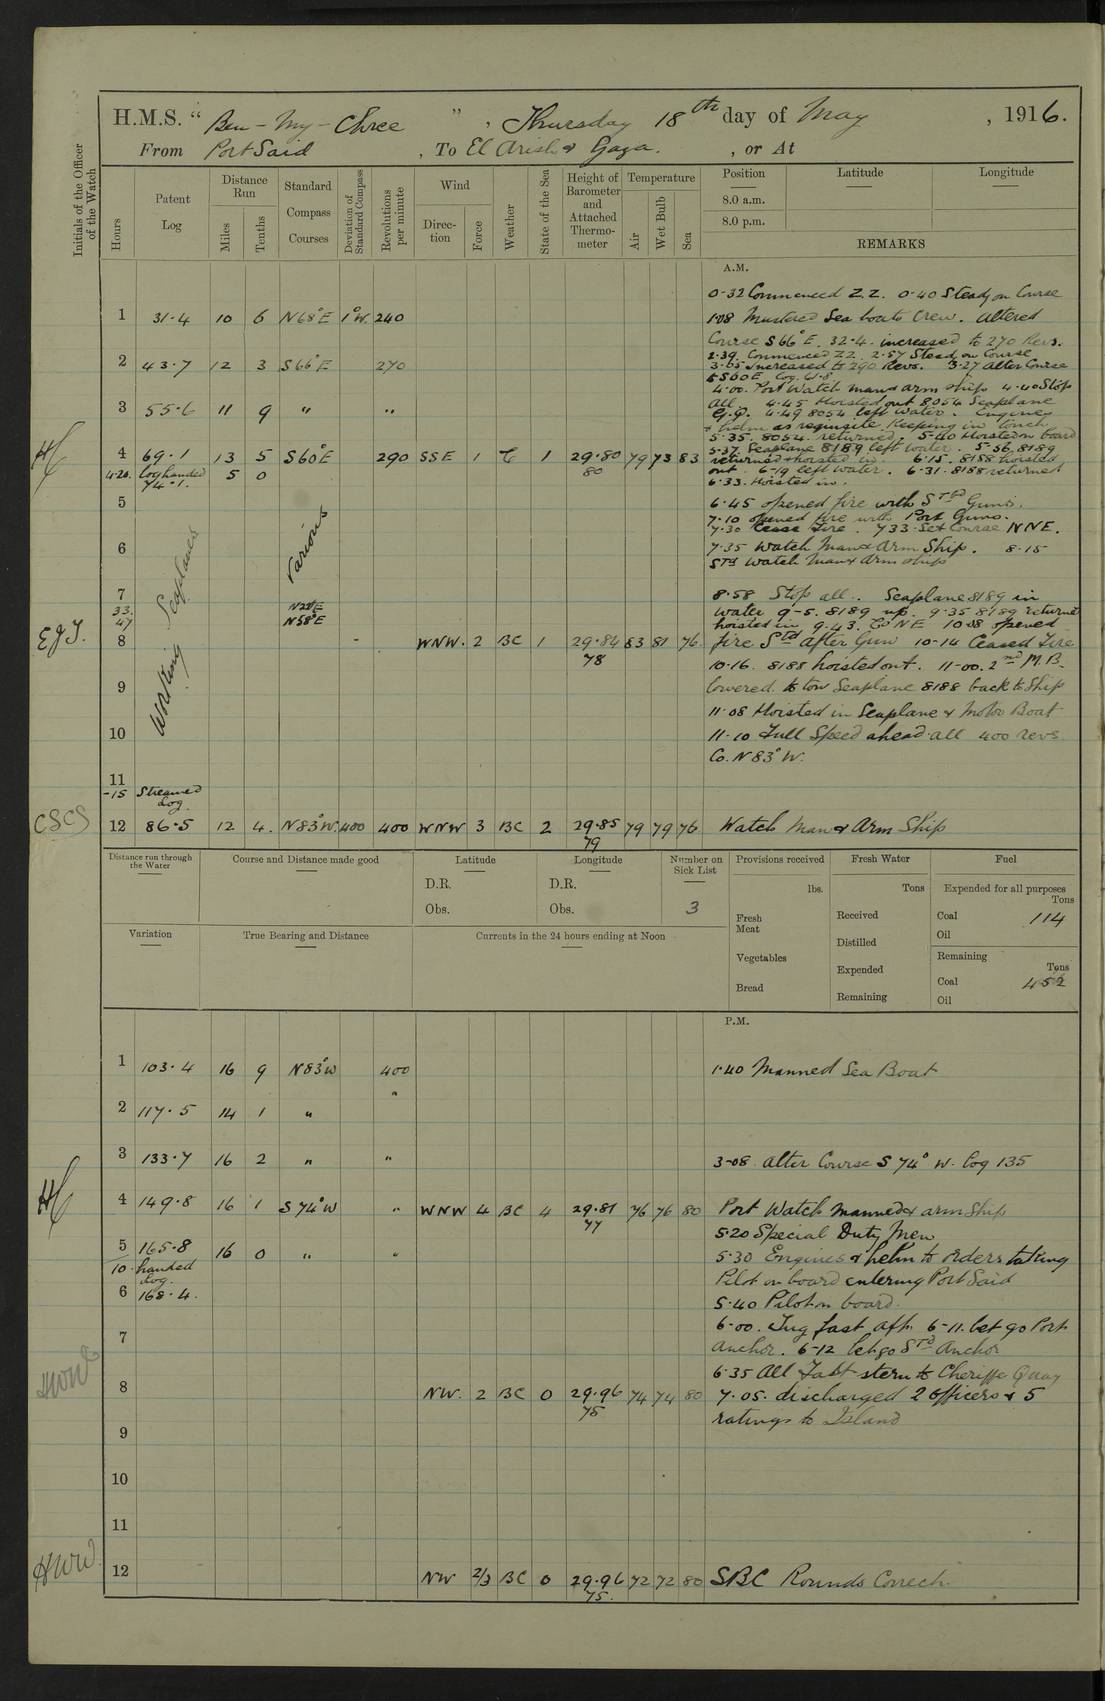 H.M.S. "Ben-My-Chree", Thursday 18th day of May, 1916.
From Port Said, To El Arish & Gaza., or At
Initials of the Officer of the Watch
Hours
Patent Log
Distance Run
Miles
Tenths
Standard Compass Courses
Deviation of Standard Compass
Revolutions per minute
Wind
Direction
Force
Weather
State of the Sea
Height of Barometer and Attached Thermometer
Temperature
Air
Wet Bulb
Sea
Position
8.0 a.m.
8.0 p.m.
Latitude
Longitude
REMARKS
A.M.
0-32 Commenced Z.Z. 0-40 Steady on Course
1 31·4 10 6 N68°E 1°W. 240 1·08 Mustered Sea boats Crew. Altered
Course S66°E. 32·4. increased to 270 Revs.
2 43·7 12 3 S66°E 270 2·39. Commenced ZZ. 2·57 Stead on Course
3·05 Increased to 290 Revs. 3·27 Alter Course
to S60E. Log 61·8
4·00. Port Watch man & arm ships 4·40 Stop
3 55·6 11 9 " " all. 4·45 Hoisted out 8054 Seaplane
4·49 8054 left water. Engines
& helm as requisite Keeping in touch
5·35. 8054 returned. 5-40 Hoisted on board
HC 4 69·1 13 5 S60°E 290 SSE 1 C 1 29·80 80 79 73 83 5·37. Seaplane 8189 left water. 5-56, 8189
4·20. log handed 74·1. 5 0 returned & hoisted in 6·15. 8188 hoisted
out. 6-19 left water. 6·31. 8188 returned
6·33. Hoisted in.
5 6·45 opened fire with Stbd Guns.
7·10 opened fire with Port Guns.
7·30 Cease Fire. 733 Set Course NNE.
6 7·35 Watch Man & Arm Ship. 8·15
Stbd Watch Man & Arm ship
Working Seaplanes
Various
7 8·58 Stop all.. Seaplane 8189 in
33. N22°E water 9-5. 8189 up. 9·35 8189 returned
47 N58°E hoisted in 9·43. Co NE 10·08 opened
EJJ. 8 WNW. 2 BC 1 29·84 78 83 81 76. fire Stbd after Gun 10-14 Ceased Fire
10·16. 8188 hoisted out. 11-00. 2nd M.B.
9 lowered to tow Seaplane 8188 back to Ship
11·08 Hoisted in Seaplane & Motor Boat
10 11·10 Full Speed ahead all 400 revs
Co. N83°W.
11
-15 Streamed log.
CSCS 12 86·5 12 4. N83°W. 400 400 WNW 3 BC 2 29·85 79 79 79 76 Watch Man & Arm Ship
Distance run through the Water
Course and Distance made good
Latitude
D.R.
Obs.
Longitude
D.R.
Obs.
Number on Sick List
3
Provisions received
lbs.
Fresh Meat
Vegetables
Bread
Fresh Water
Tons
Received
Distilled
Expended
Remaining
Fuel
Expended for all purposes
Tons
Coal 114
Oil
Remaining
Tons
Coal 452
Oil
Variation
True Bearing and Distance
Currents in the 24 hours ending at Noon
P.M.
1 103·4 16 9 N83°W 400 1·40 Manned Sea Boat
2 117·5 14 1 " "
3 133·7 16 2 " " 3-08 alter Course S74° W. Log 135
HC 4 149·8 16 1 S74°W " WNW 4 BC 4 29·87 77 76 76 80 Port Watch manned & arm Ship
5·20 Special Duty Men
5 165·8 16 0 " " 5·30 Engines & helm to orders taking
10. handed log. Pilot on board entering Port Said
6 168·4. 5·40 Pilot on board.
6-00. Tug fast aft. 6-11. let go Port
7 anchor. 6-12 let go Stbd Anchor
6·35 All Fast stern to Cheriffe Quay
HWW 8 NW. 2 BC 0 29·96 75 74 74 80 7·05. discharged 2 officers & 5
ratings to Island
9
10
11
HWW. 12 NW 2/3 BC 0 29·96 75. 72 72 80 SBC Rounds Correct.